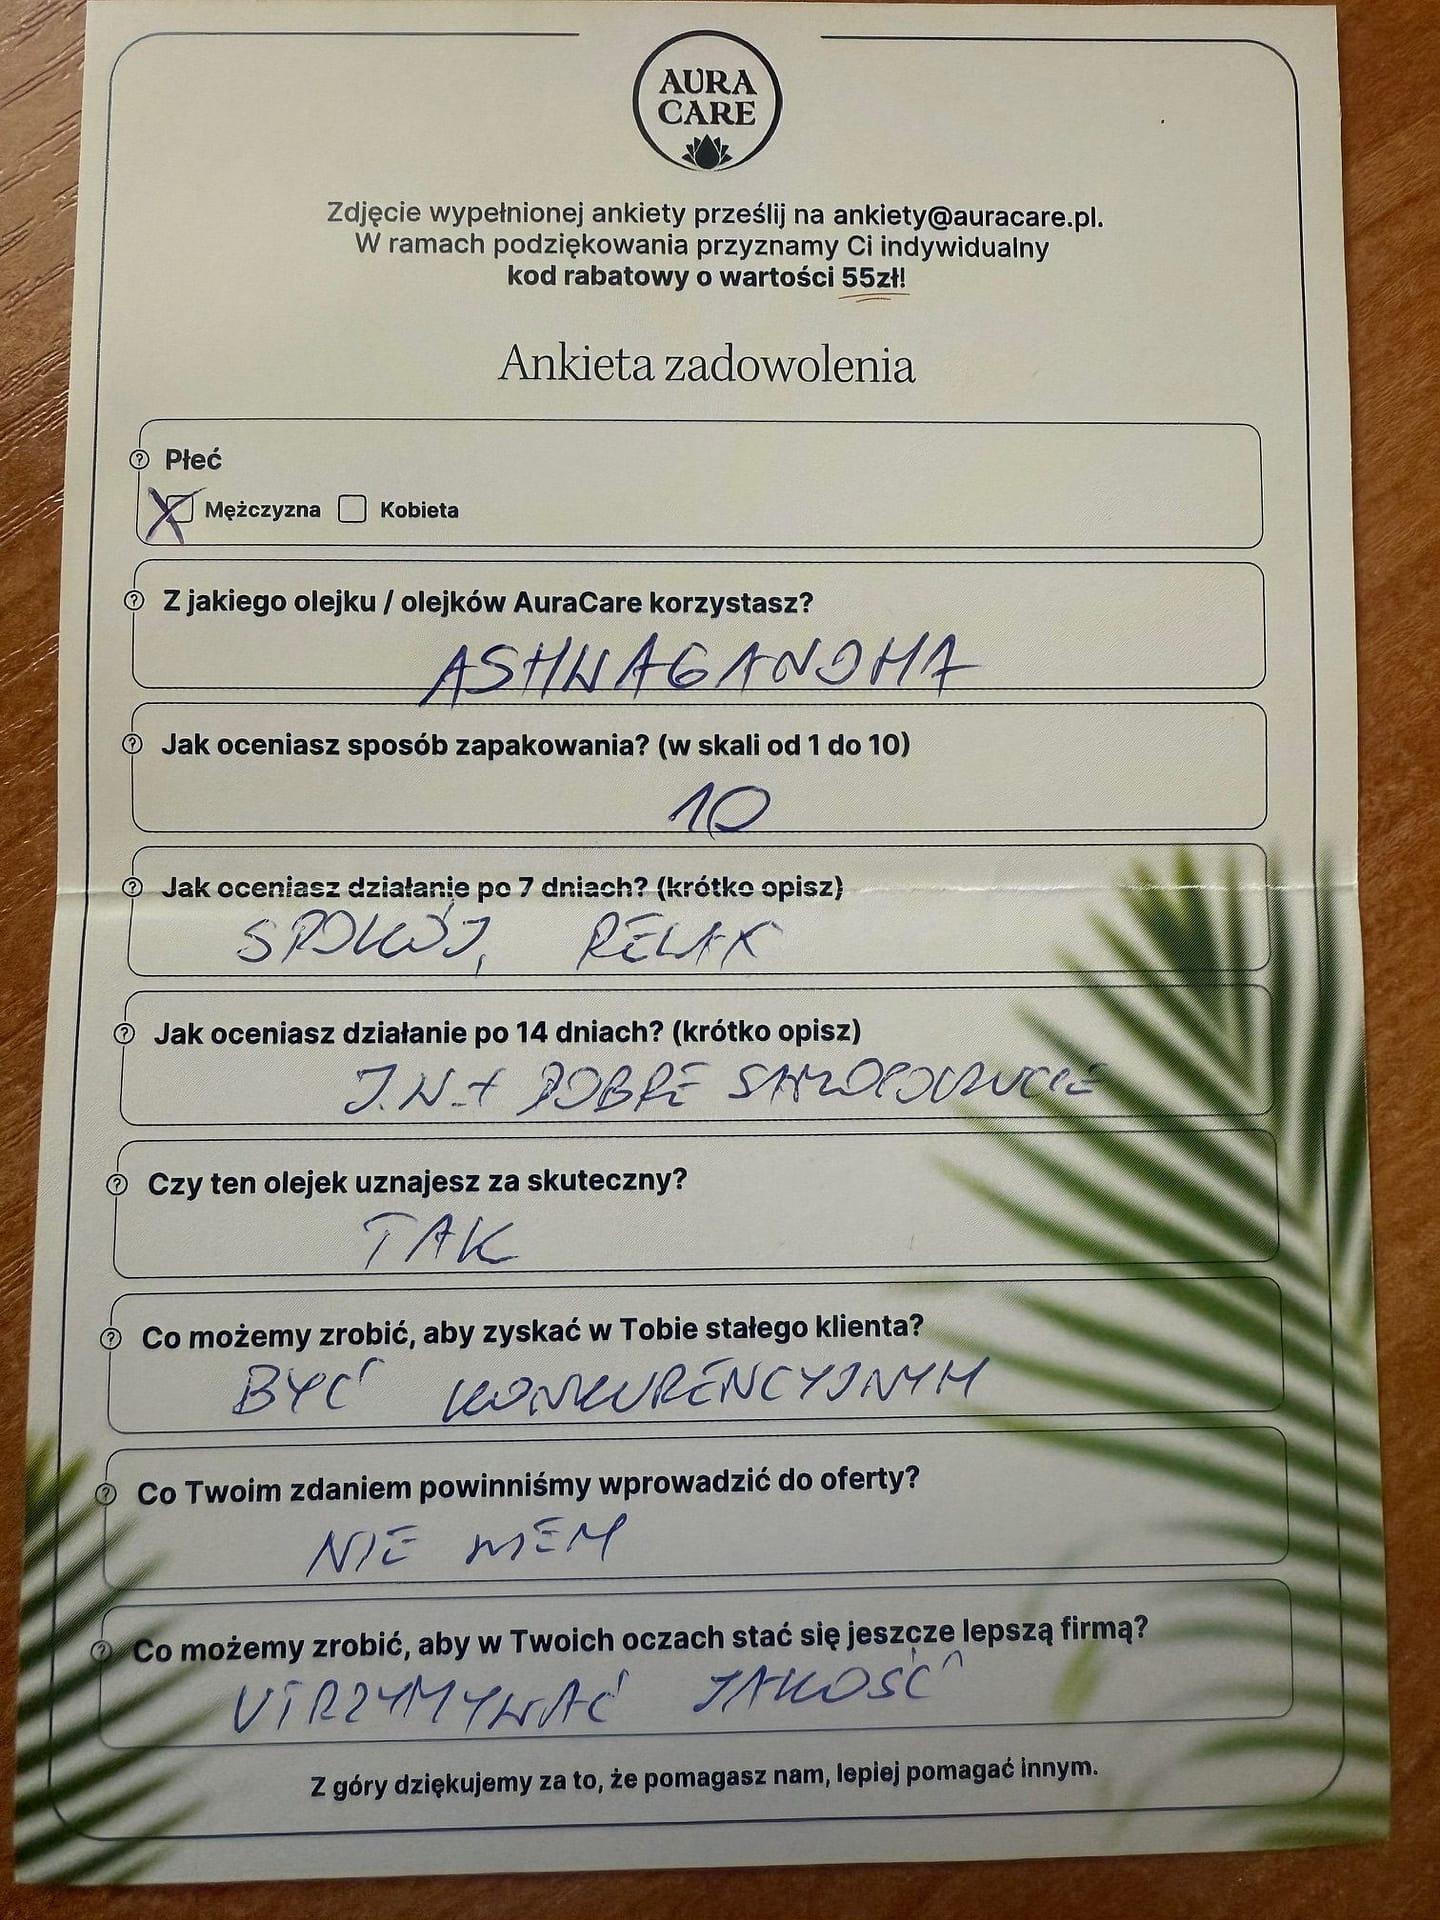 AURA
CARE
Zdjęcie wypełnionej ankiety prześlij na ankiety@auracare.pl.
W ramach podziękowania przyznamy Ci indywidualny
kod rabatowy o wartości 55zł!
Ankieta zadowolenia
Płeć
X Mężczyzna Kobieta
Z jakiego olejku / olejków AuraCare korzystasz?
ASHWAGANDHA
Jak oceniasz sposób zapakowania? (w skali od 1 do 10)
10
Jak oceniasz działanie po 7 dniach? (krótko opisz)
SPOKÓJ, RELAX
Jak oceniasz działanie po 14 dniach? (krótko opisz)
J.W + DOBRE SAMOPOCZUCIE
Czy ten olejek uznajesz za skuteczny?
TAK
Co możemy zrobić, aby zyskać w Tobie stałego klienta?
BYĆ KONKURENCYJNYM
Co Twoim zdaniem powinniśmy wprowadzić do oferty?
NIE WIEM
Co możemy zrobić, aby w Twoich oczach stać się jeszcze lepszą firmą?
UTRZYMYWAĆ JAKOŚĆ
Z góry dziękujemy za to, że pomagasz nam, lepiej pomagać innym.